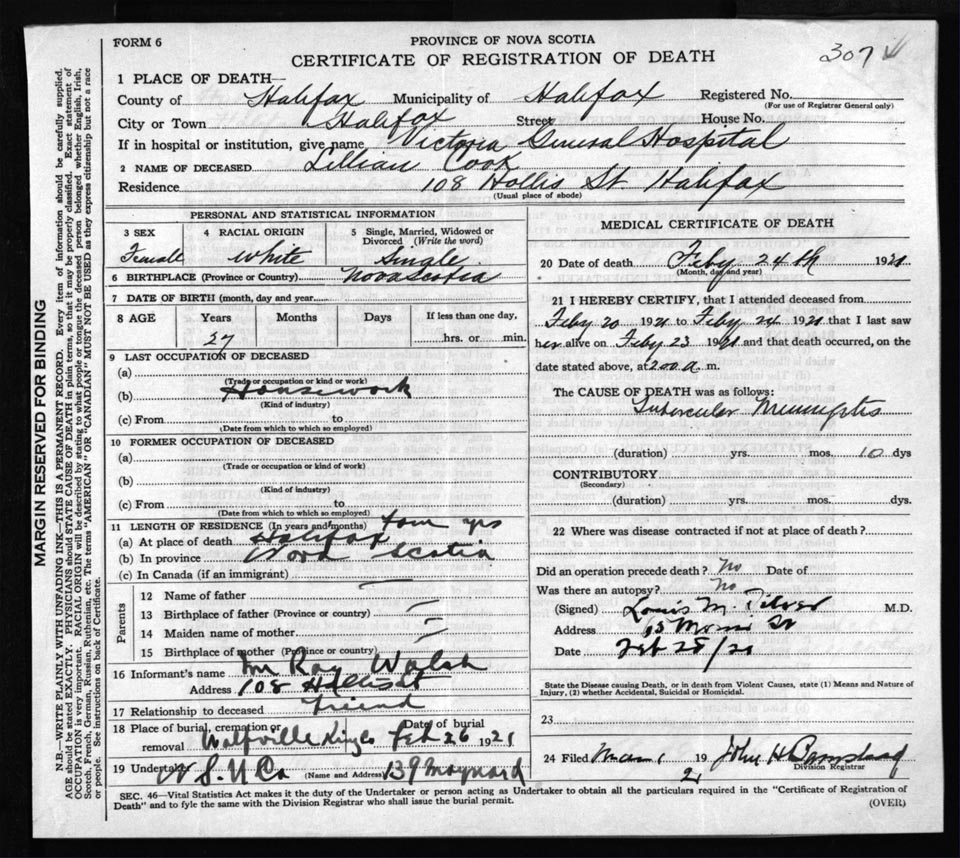 FORM 6
PROVINCE OF NOVA SCOTIA
CERTIFICATE OF REGISTRATION OF DEATH
307
1 PLACE OF DEATH—
County of Halifax Municipality of Halifax Registered No.
(For use of Registrar General only)
City or Town Halifax Street House No.
If in hospital or institution, give name Victoria General Hospital
2 NAME OF DECEASED Lillian Cook
Residence 108 Hollis St Halifax
(Usual place of abode)
PERSONAL AND STATISTICAL INFORMATION
3 SEX 4 RACIAL ORIGIN 5 Single, Married, Widowed or Divorced (Write the word)
Female White Single
6 BIRTHPLACE (Province or Country) Nova Scotia
7 DATE OF BIRTH (month, day and year)
8 AGE Years Months Days If less than one day,
27 hrs. or min.
9 LAST OCCUPATION OF DECEASED
(a)
(Trade or occupation or kind or work)
(b) Housework
(Kind of industry)
(c) From to
(Date from which to which so employed)
10 FORMER OCCUPATION OF DECEASED
(a)
(Trade or occupation or kind of work)
(b)
(Kind of industry)
(c) From to
(Date from which to which so employed)
11 LENGTH OF RESIDENCE (In years and months) four yrs
(a) At place of death Halifax
(b) In province Nova Scotia
(c) In Canada (if an immigrant)
Parents
12 Name of father
13 Birthplace of father (Province or country)
14 Maiden name of mother
15 Birthplace of mother (Province or country)
16 Informant's name Mr Roy Walsh
Address 108 Hollis St
17 Relationship to deceased friend
18 Place of burial, cremation or removal Wolfville Kings Co Date of burial Feb 26 1921
19 Undertaker N S U Co (Name and Address) 139 Maynard
MEDICAL CERTIFICATE OF DEATH
20 Date of death Feby 24th 1921
(Month, day and year)
21 I HEREBY CERTIFY, that I attended deceased from
Feby 20 1921 to Feby 24 1921 that I last saw
her alive on Feby 23 1921 and that death occurred, on the
date stated above, at 2.00 a. m.
The CAUSE OF DEATH was as follows:
Tubercular Meningitis
(duration) yrs. mos. 10 dys
CONTRIBUTORY
(Secondary)
(duration) yrs. mos. dys.
22 Where was disease contracted if not at place of death?
Did an operation precede death? No Date of
Was there an autopsy? No
(Signed) Louis M. Silver M.D.
Address 65 Morris St
Date Feb 25/21
State the Disease causing Death, or in death from Violent Causes, state (1) Means and Nature of
Injury, (2) whether Accidental, Suicidal or Homicidal.
23
24 Filed Mar 1 1921 John H Barnstead
Division Registrar
SEC. 46—Vital Statistics Act makes it the duty of the Undertaker or person acting as Undertaker to obtain all the particulars required in the "Certificate of Registration of
Death" and to fyle the same with the Division Registrar who shall issue the burial permit.
(OVER)
MARGIN RESERVED FOR BINDING
N.B.—WRITE PLAINLY WITH UNFADING INK—THIS IS A PERMANENT RECORD. Every item of information should be carefully supplied.
AGE should be stated EXACTLY. PHYSICIANS should STATE CAUSE OF DEATH in plain terms, so that it may be properly classified. Exact statement of
OCCUPATION is very important. RACIAL ORIGIN will be described by stating to what people or tongue the deceased person belonged whether English, Irish,
Scotch, French, German, Russian, Ruthenian, etc. The terms "AMERICAN" or "CANADIAN" MUST NOT BE USED as they express citizenship but not a race
or people. See instructions on back of Certificate.